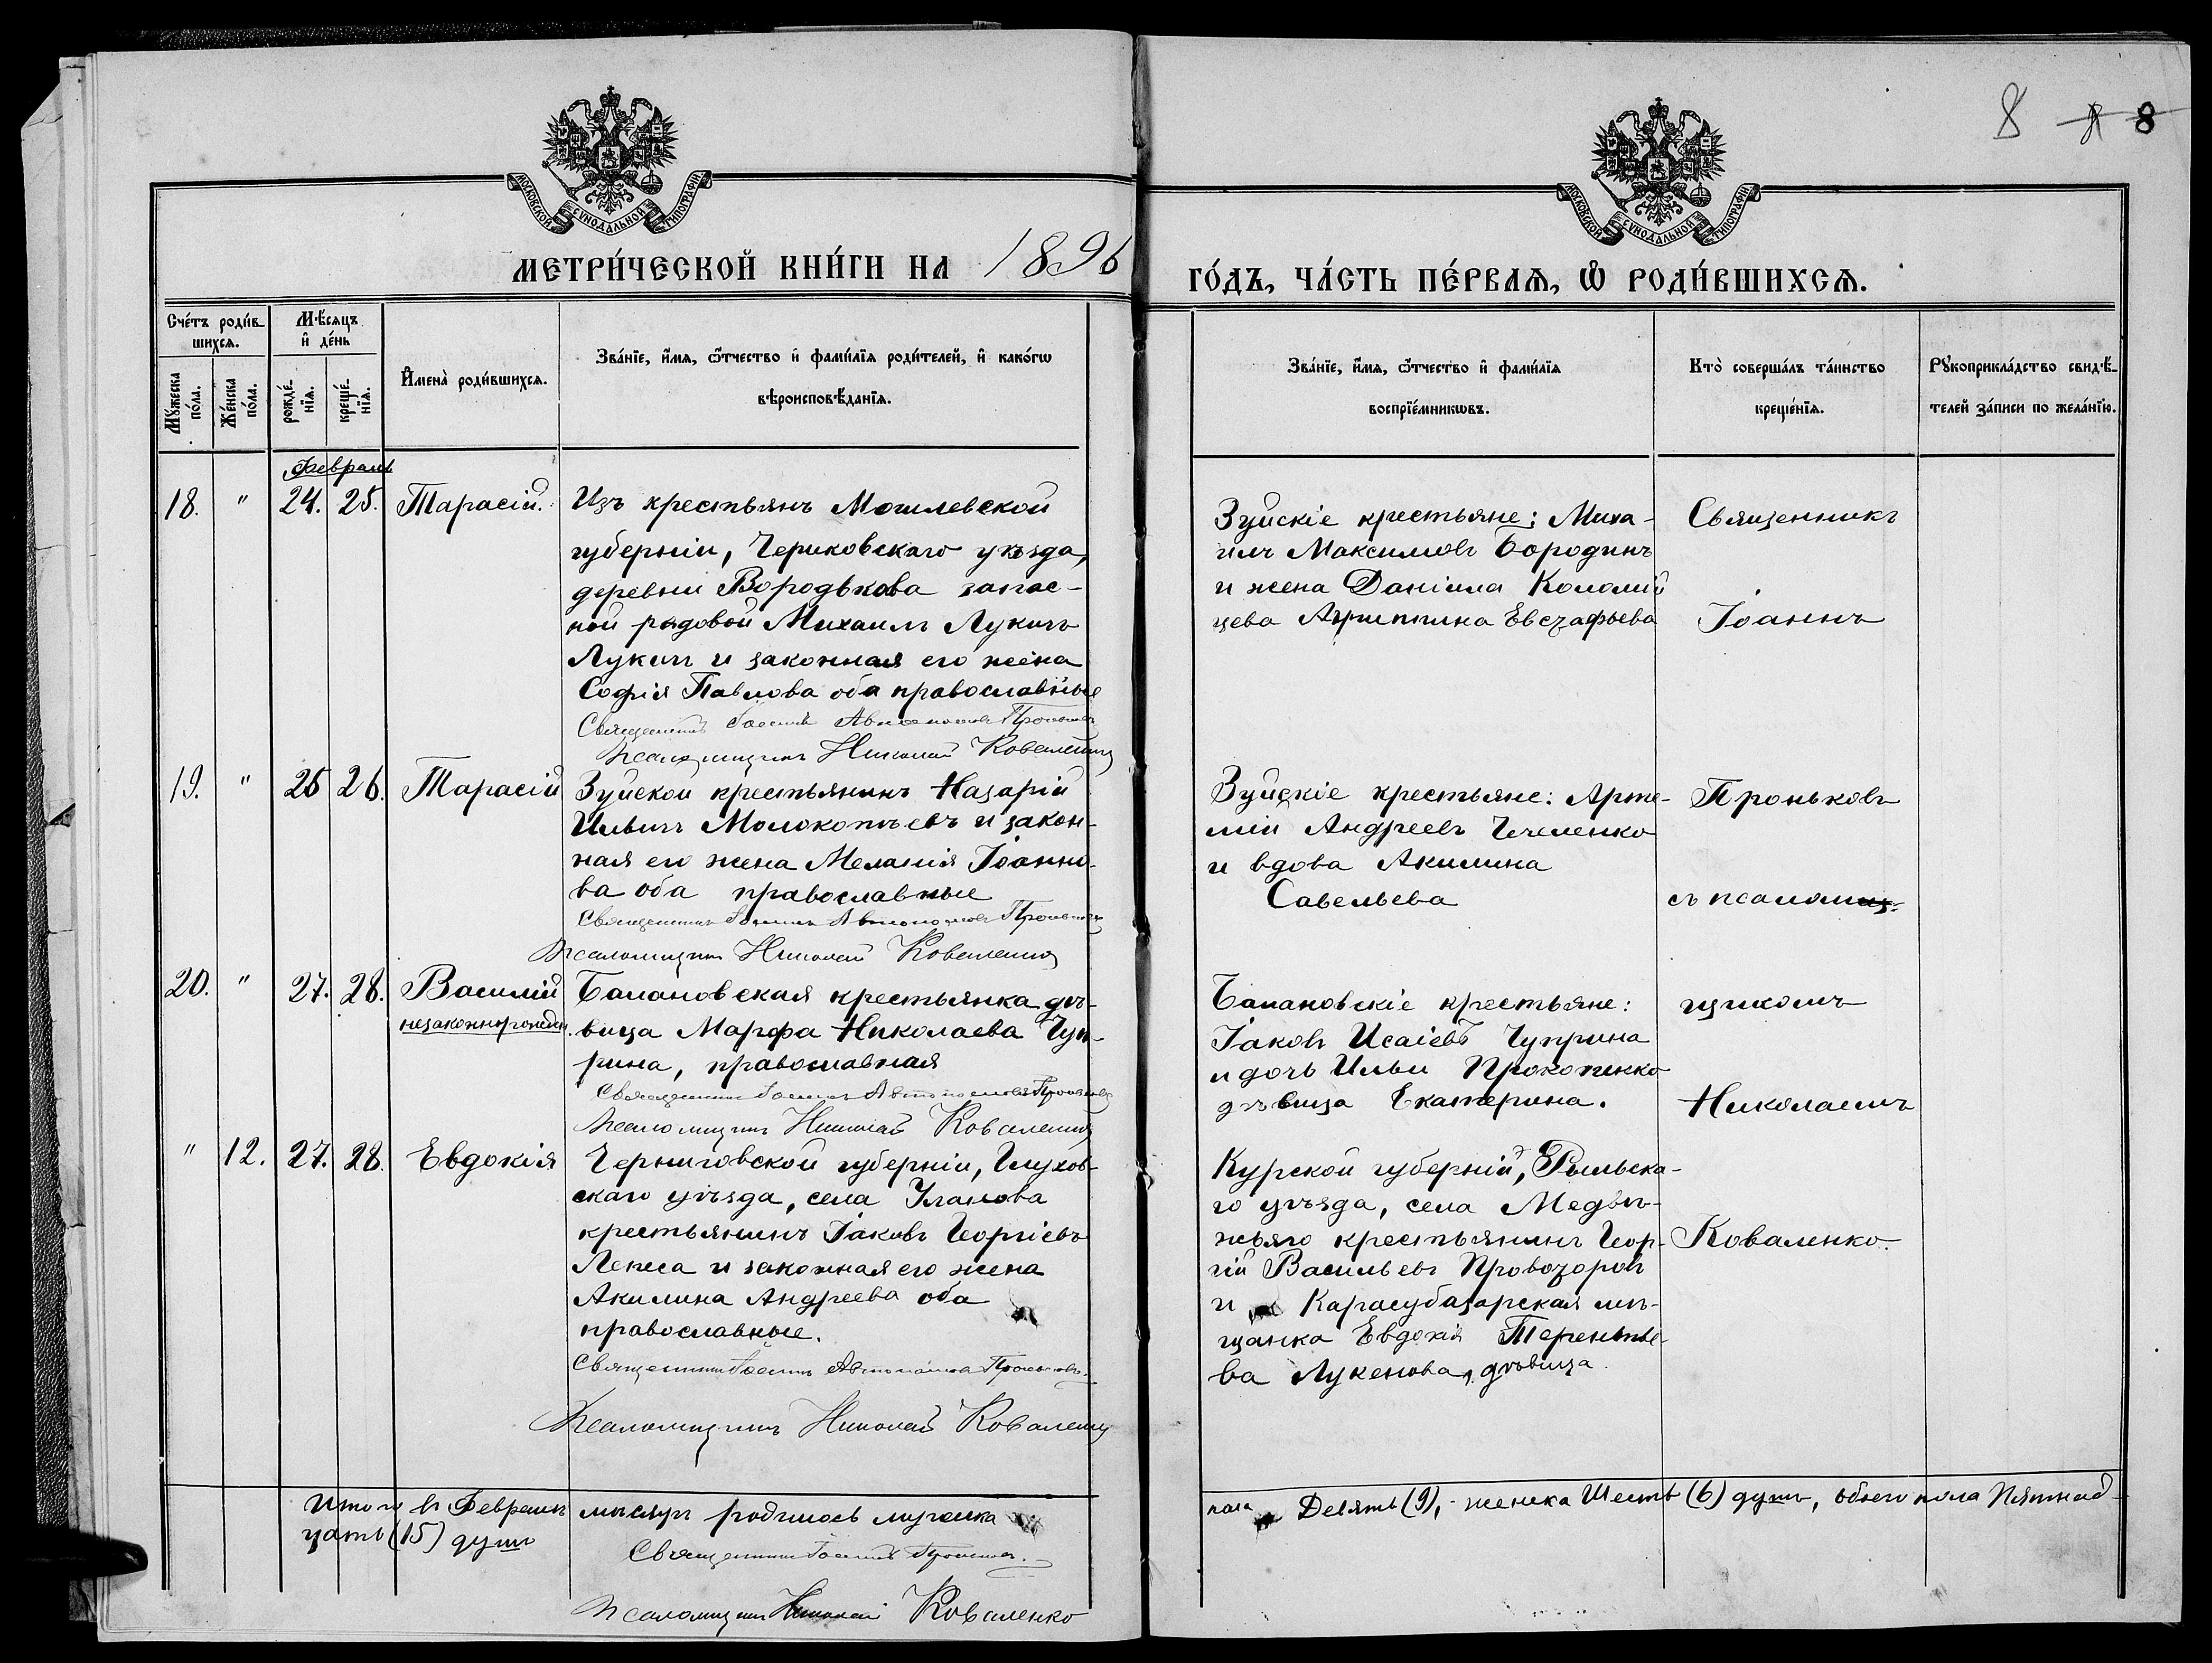 8 8 8
МОСКОВСКОЙ СѴНОДАЛЬНОЙ ТИПОГРАФІИ
МОСКОВСКОЙ СѴНОДАЛЬНОЙ ТИПОГРАФІИ
МЕТРИ́ЧЕСКОЙ КНИ́ГИ НА 1896
ГО́ДЪ, ЧА́СТЬ ПЕ́РВАѦ, Ѿ РОДИ́ВШИХСѦ.
Сче́тъ роди́в-
шихсѧ.
Мꙋ́жеска по́ла.
Же́нска по́ла.
Мѣ́сѧцъ
и҆ де́нь
рожде́-
нїѧ.
креще́-
нїѧ.
И҆мена̀ роди́вшихсѧ.
Зва́нїе, и҆́мѧ, ѻ҆́тчество и҆ фами́лїѧ роди́телей, и҆ како́гѡ
вѣроисповѣ́данїѧ.
Зва́нїе, и҆́мѧ, ѻ҆́тчество и҆ фами́лїѧ
воспрїе́мникѡвъ.
Кто̀ соверша́лъ та́инство
креще́нїѧ.
Рꙋкоприкла́дство свидѣ́-
телей за́писи по жела́нїю.
Февраль
18. " 24. 25. Тарасій.
Изъ крестьянъ Могилевской
губерніи, Чериковскаго уѣзда,
деревни Вородькова запас-
ной рядовой Михаилъ Лукичъ
Лукичъ и законная его жена
Софія Павлова оба православные
Священникъ Іоаннъ Автономовъ Проньковъ
Псаломщикъ Николай Коваленко
Зуйскіе крестьяне: Миха-
илъ Максимовъ Бородинъ
и жена Даніила Коломій
цева Агриппина Евсгафьева
Священникъ
Іоаннъ
19. " 25 26. Тарасій
Зуйской крестьянинъ Назарій
Ильичъ Молокопъевъ и закон-
ная его жена Меланія Іоанно-
ва оба православные
Священникъ Іоаннъ Автономовъ Проньковъ
Псаломщикъ Николай Коваленко
Зуйскіе крестьяне: Арте-
мій Андреевъ Чечеленко
и вдова Акилина
Савельева
Проньковъ
съ псаломщ-
20. " 27. 28. Василій
незаконнорожден.
Балановская крестьянка дѣ-
вица Марфа Николаева Чуп-
рина, православная
Священникъ Іоаннъ Автономовъ Проньковъ
Псаломщикъ Николай Коваленко
Балановскіе крестьяне:
Іаковъ Исаіевъ Чуприна
и дочь Ильи Прокопенко
дѣвица Екатерина.
щикомъ
Николаемъ
" 12. 27. 28. Евдокія
Черниговской губерніи, Глухов-
скаго уѣзда, села Уланова
крестьянинъ Іаковъ Георгіевъ
Лепеса и законная его жена
Акилина Андреева оба
православные.
Священникъ Іоаннъ Автономовъ Проньковъ.
Псаломщикъ Николай Коваленко
Курской губерній, Рыльска-
го уѣзда, села Медвѣ-
жьяго крестьянинъ Геор-
гій Васильевъ Провозоровъ
и Карасубазарская мѣ-
щанка Евдокія Терентье-
ва Лукенова, дѣвица.
Коваленко.
Итого въ Февралѣ мѣсяцѣ родилось мужеска
пола Девять (9), женска Шесть (6) душъ, обоего пола Пятнад-
цать (15) душъ
Священникъ Іоаннъ Проньковъ.
Псаломщикъ Николай Коваленко